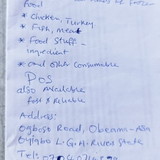 food
* Chicken, Turkey
* Fish, meat
* Food Stuff -
Ingredient
* and other Consumable
POS
also available
fast & Reliable
Address:
Road, Obeama - Asa
Oyigbo L.G.A. Rivers State